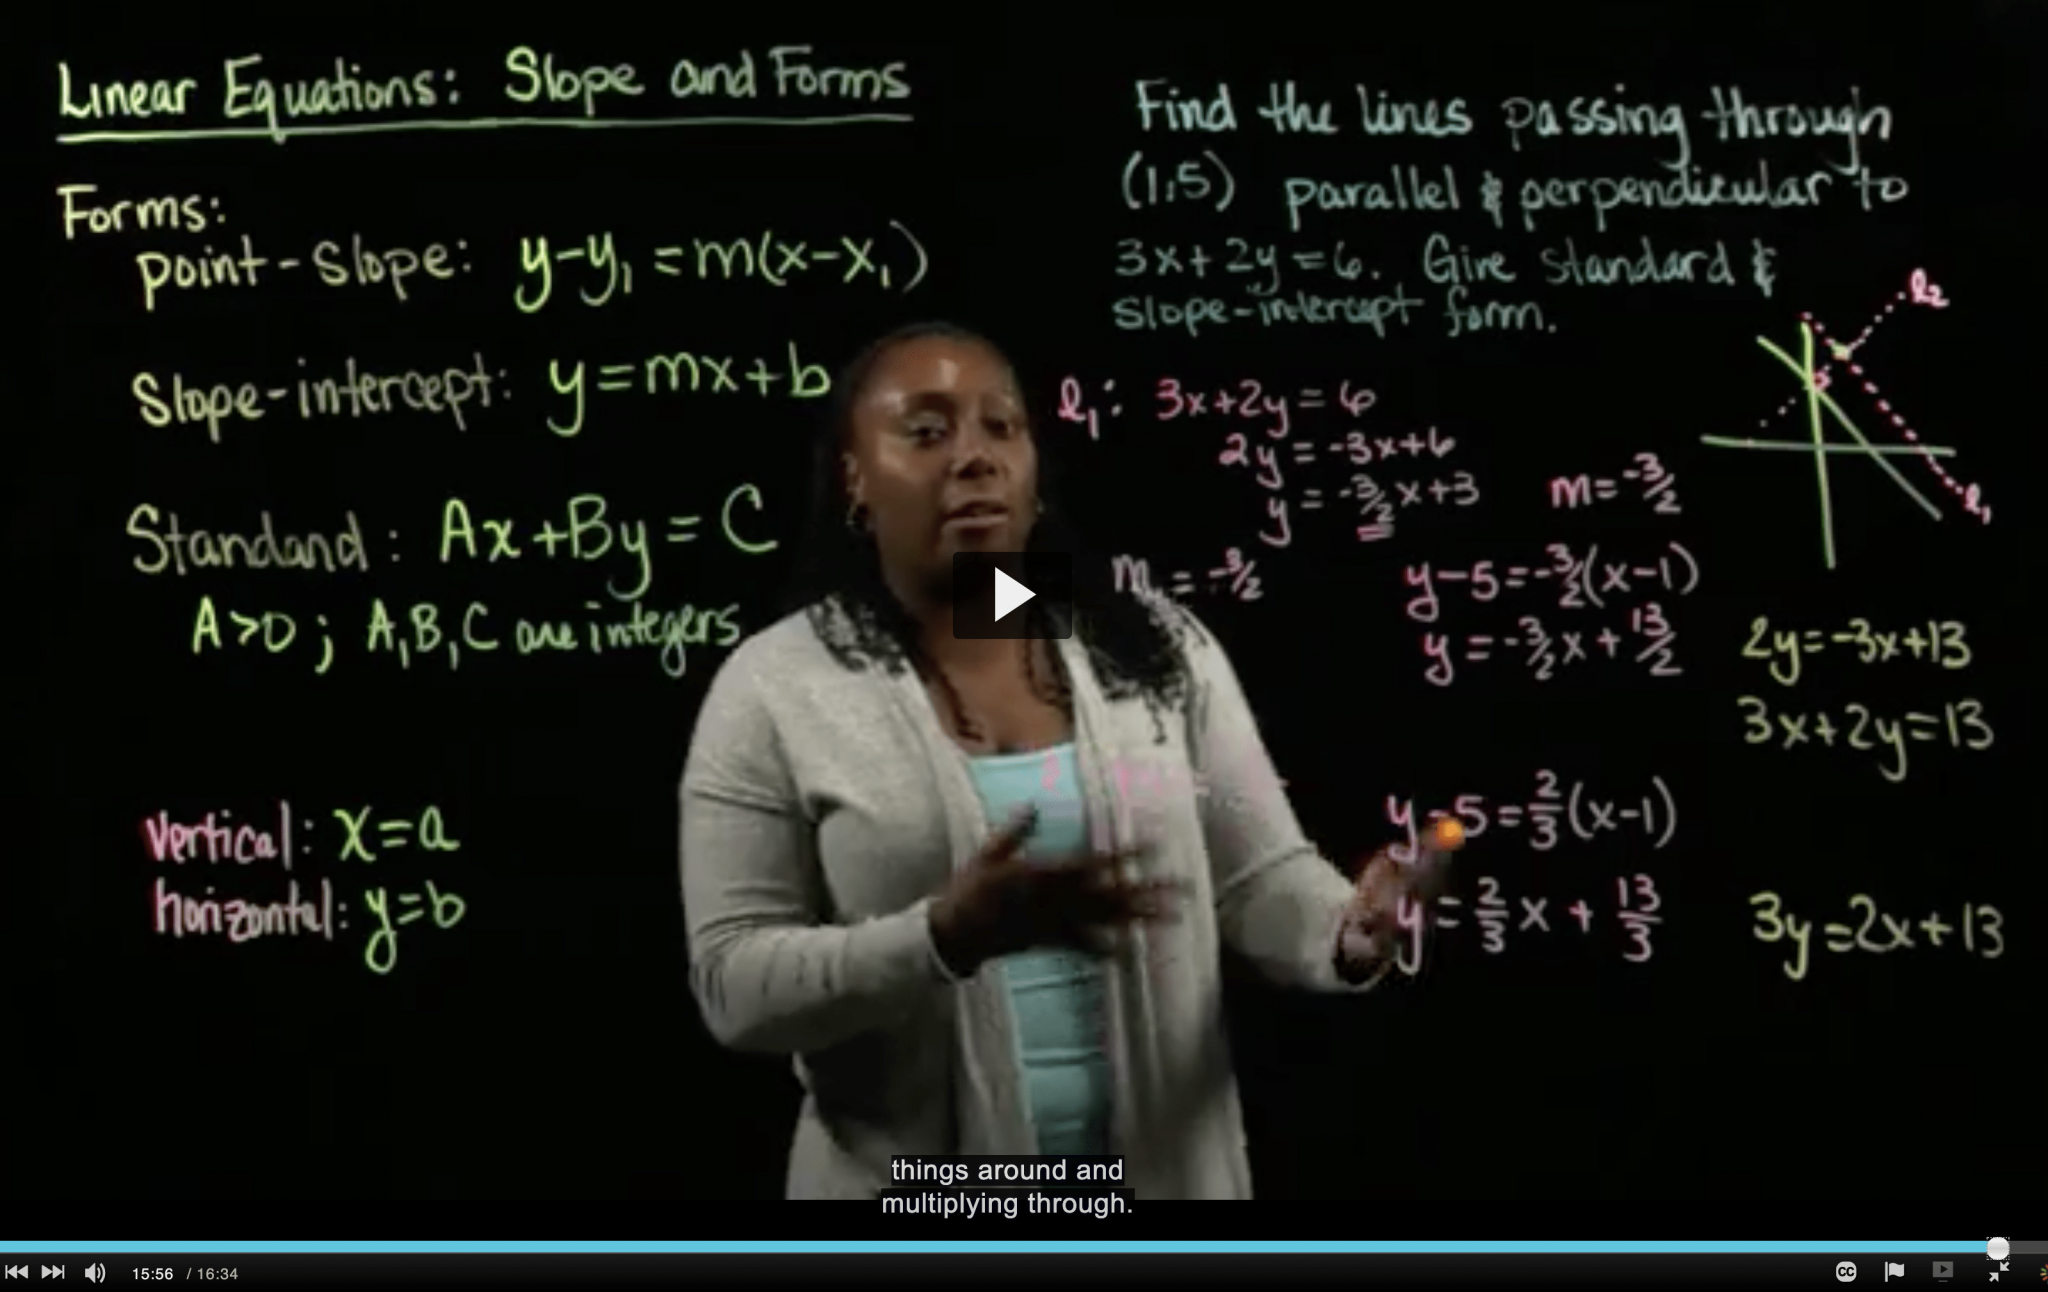 Linear Equations: Slope and Forms
Forms:
point-slope: y-y₁ = m(x-x₁)
Slope-intercept: y=mx+b
Standard: Ax+By=C
A>0; A,B,C are integers
vertical: x=a
horizontal: y=b
Find the lines passing through
(1,5) parallel & perpendicular to
3x+2y=6. Give standard &
slope-intercept form.
l₂
l₁
l₁: 3x+2y=6
2y=-3x+6
y=-3/2x+3
m=-3/2
m=-3/2
y-5=-3/2(x-1)
y=-3/2x+13/2
2y=-3x+13
3x+2y=13
y-5=2/3(x-1)
y=2/3x+13/3
3y=2x+13
things around and
multiplying through.
15:56 / 16:34
CC